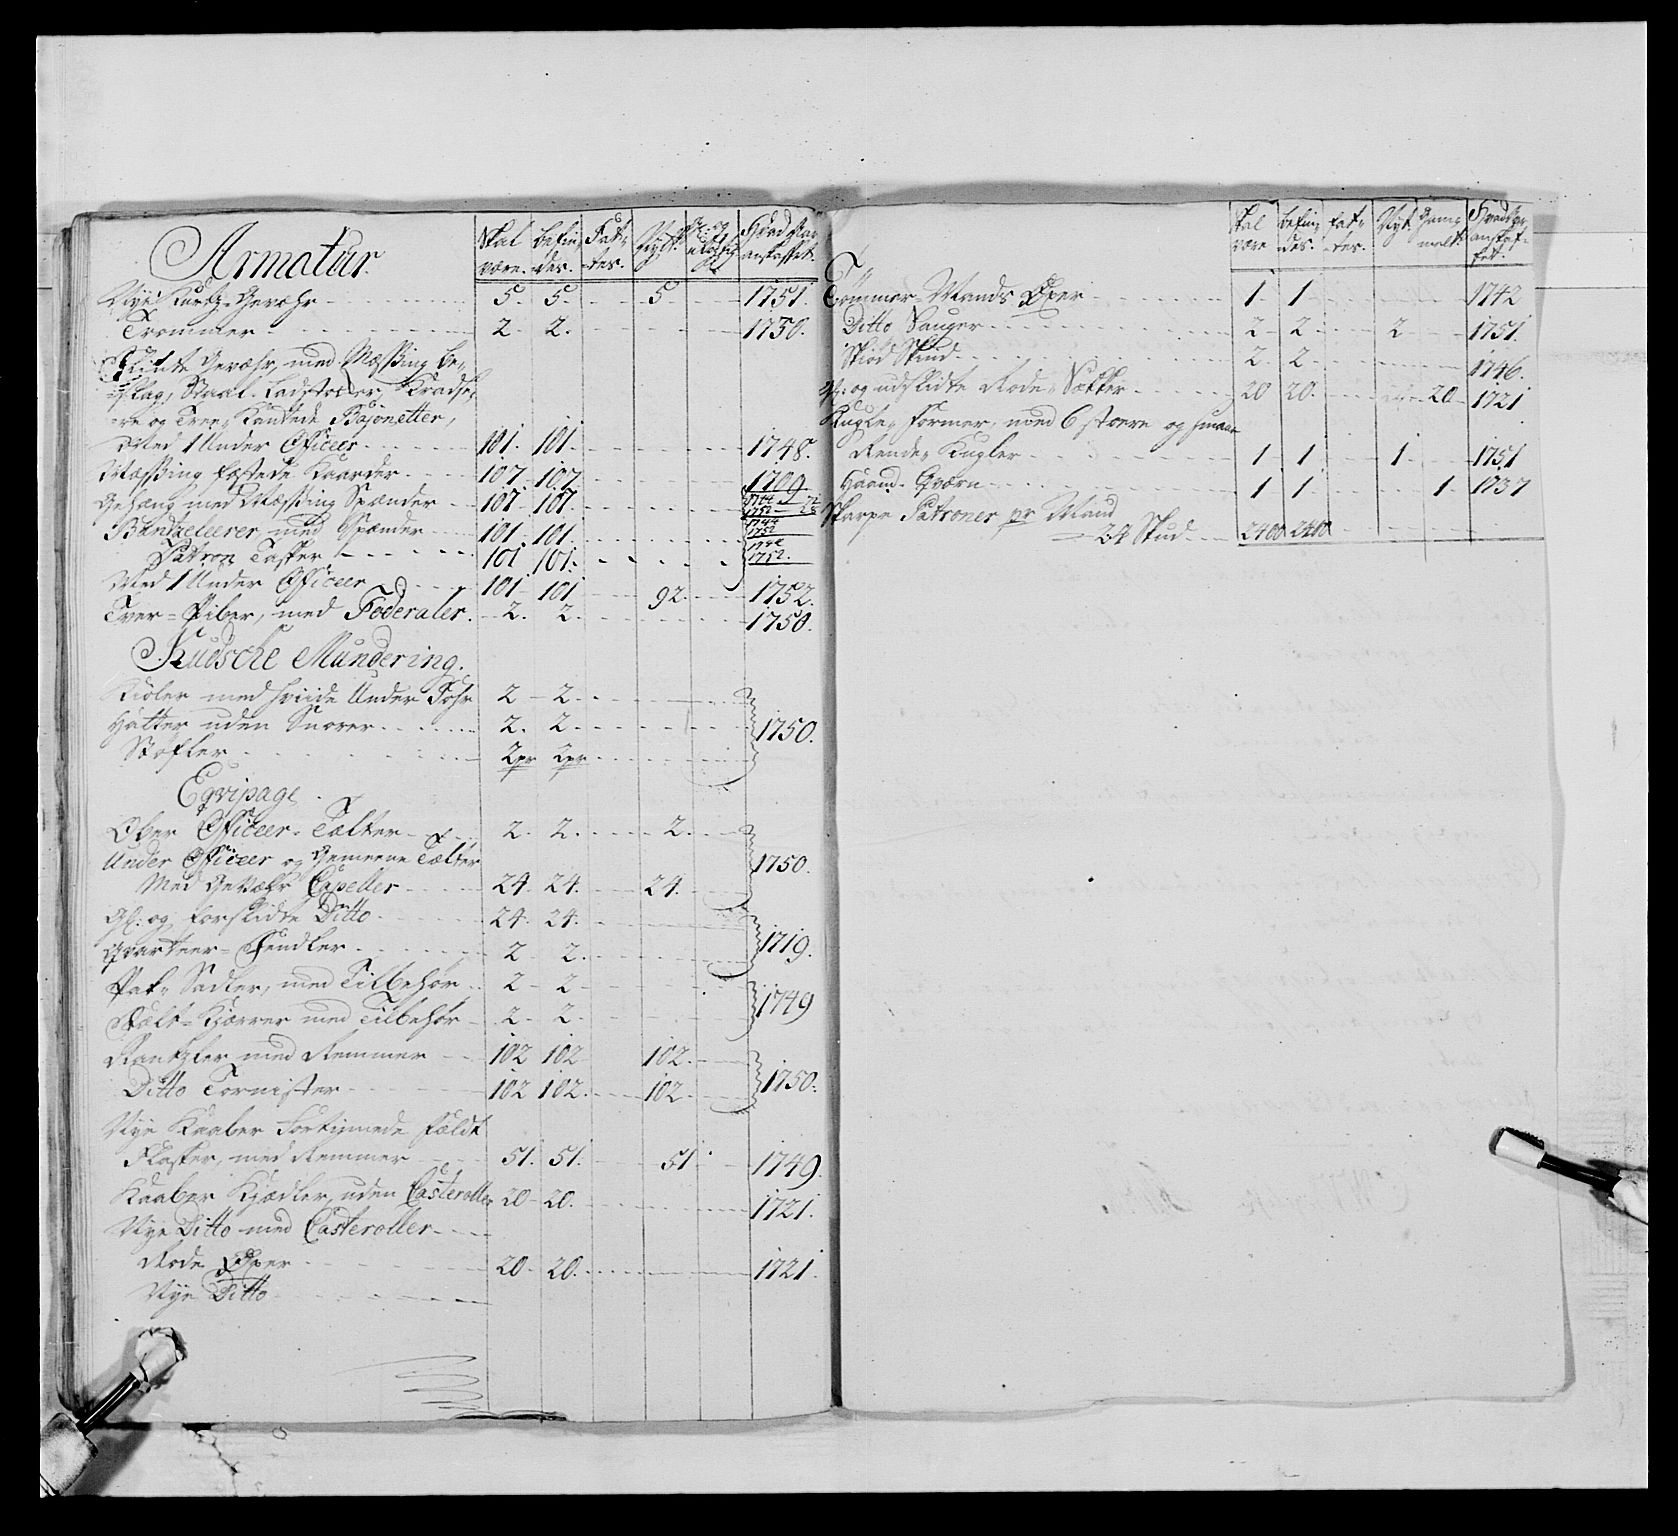 Armatur.
Skal være. befindes. Fattes. Nytt. Gl: og udslidt Hvad Aar anskaffet.
Nye Kurtz-Gevæhr 5. 5. 5 1751.
Trommer 2 2. 1750.
Flinte Gevæhr, med Messing be-
slag, Staal-Ladstocker, Kradse-
re og Tree-Kantede Bajonetter,
Med 1 Under Officeer 101. 101. 1748.
Messing fæstede Kaarder 107. 107 1709
Gehæng med Messing Spænder 107 107. 1744 1752
Bantzeleerer med Spænder 101. 101. 1744 1752
Patron Tasker 101 101. 1744 1752.
Med 1 Under Officeer 101 101 92. 1752.
Tver-Piber, med Foderaler. 2. 2. 1750.
Kudske Mundering.
Kioler med hviide Under Fohr 2 2
Hatter uden Snorer 2. 2. 1750.
Støfler 2pr 2pr
Eqvipage
Ober Officeer-Tælter 2. 2. 2.
Under Officeer og Gemeene Tælter 1750.
Med Gevæhr Capeller 24. 24. 24.
Gl: og forslidte Ditto 24. 24.
Qvarteer-Fendler 2 2. 1719.
Pak-Sadler, med Tilbehør 2 2
Fælt-Kjærrer med Tilbehør 2 2 1749
Rantzler med Remmer 102 102 102.
Ditto Tornister 102 102. 102. 1750.
Nye Kaaber Fortinnede Feldt
Flasker, med Remmer 51. 51. 51 1749.
Kaaber Kjædler, uden Casteroller 20 20. 1721.
Nye Ditto med Casteroller
Rode Øxer 20 20. 1721.
Nye Ditto
Skal være befindes. fattes. Nyt Gammelt Hvad Aar anskaffet.
Tømmer-Mands Øxer 1 1 1742
Ditto Sauger 2 2 2 1751.
Skiød Skind 2 2 1746.
Gl: og udslidte Rode-Hakker 20 20. 20 1721
Kugle-Former, med 6 stoere og smaae
Rende-Kugler 1 1 1 1751
Haand-Qværn 1 1 1 1737
Skarpe Patroner pr Mand
24 Skud 2400 2400